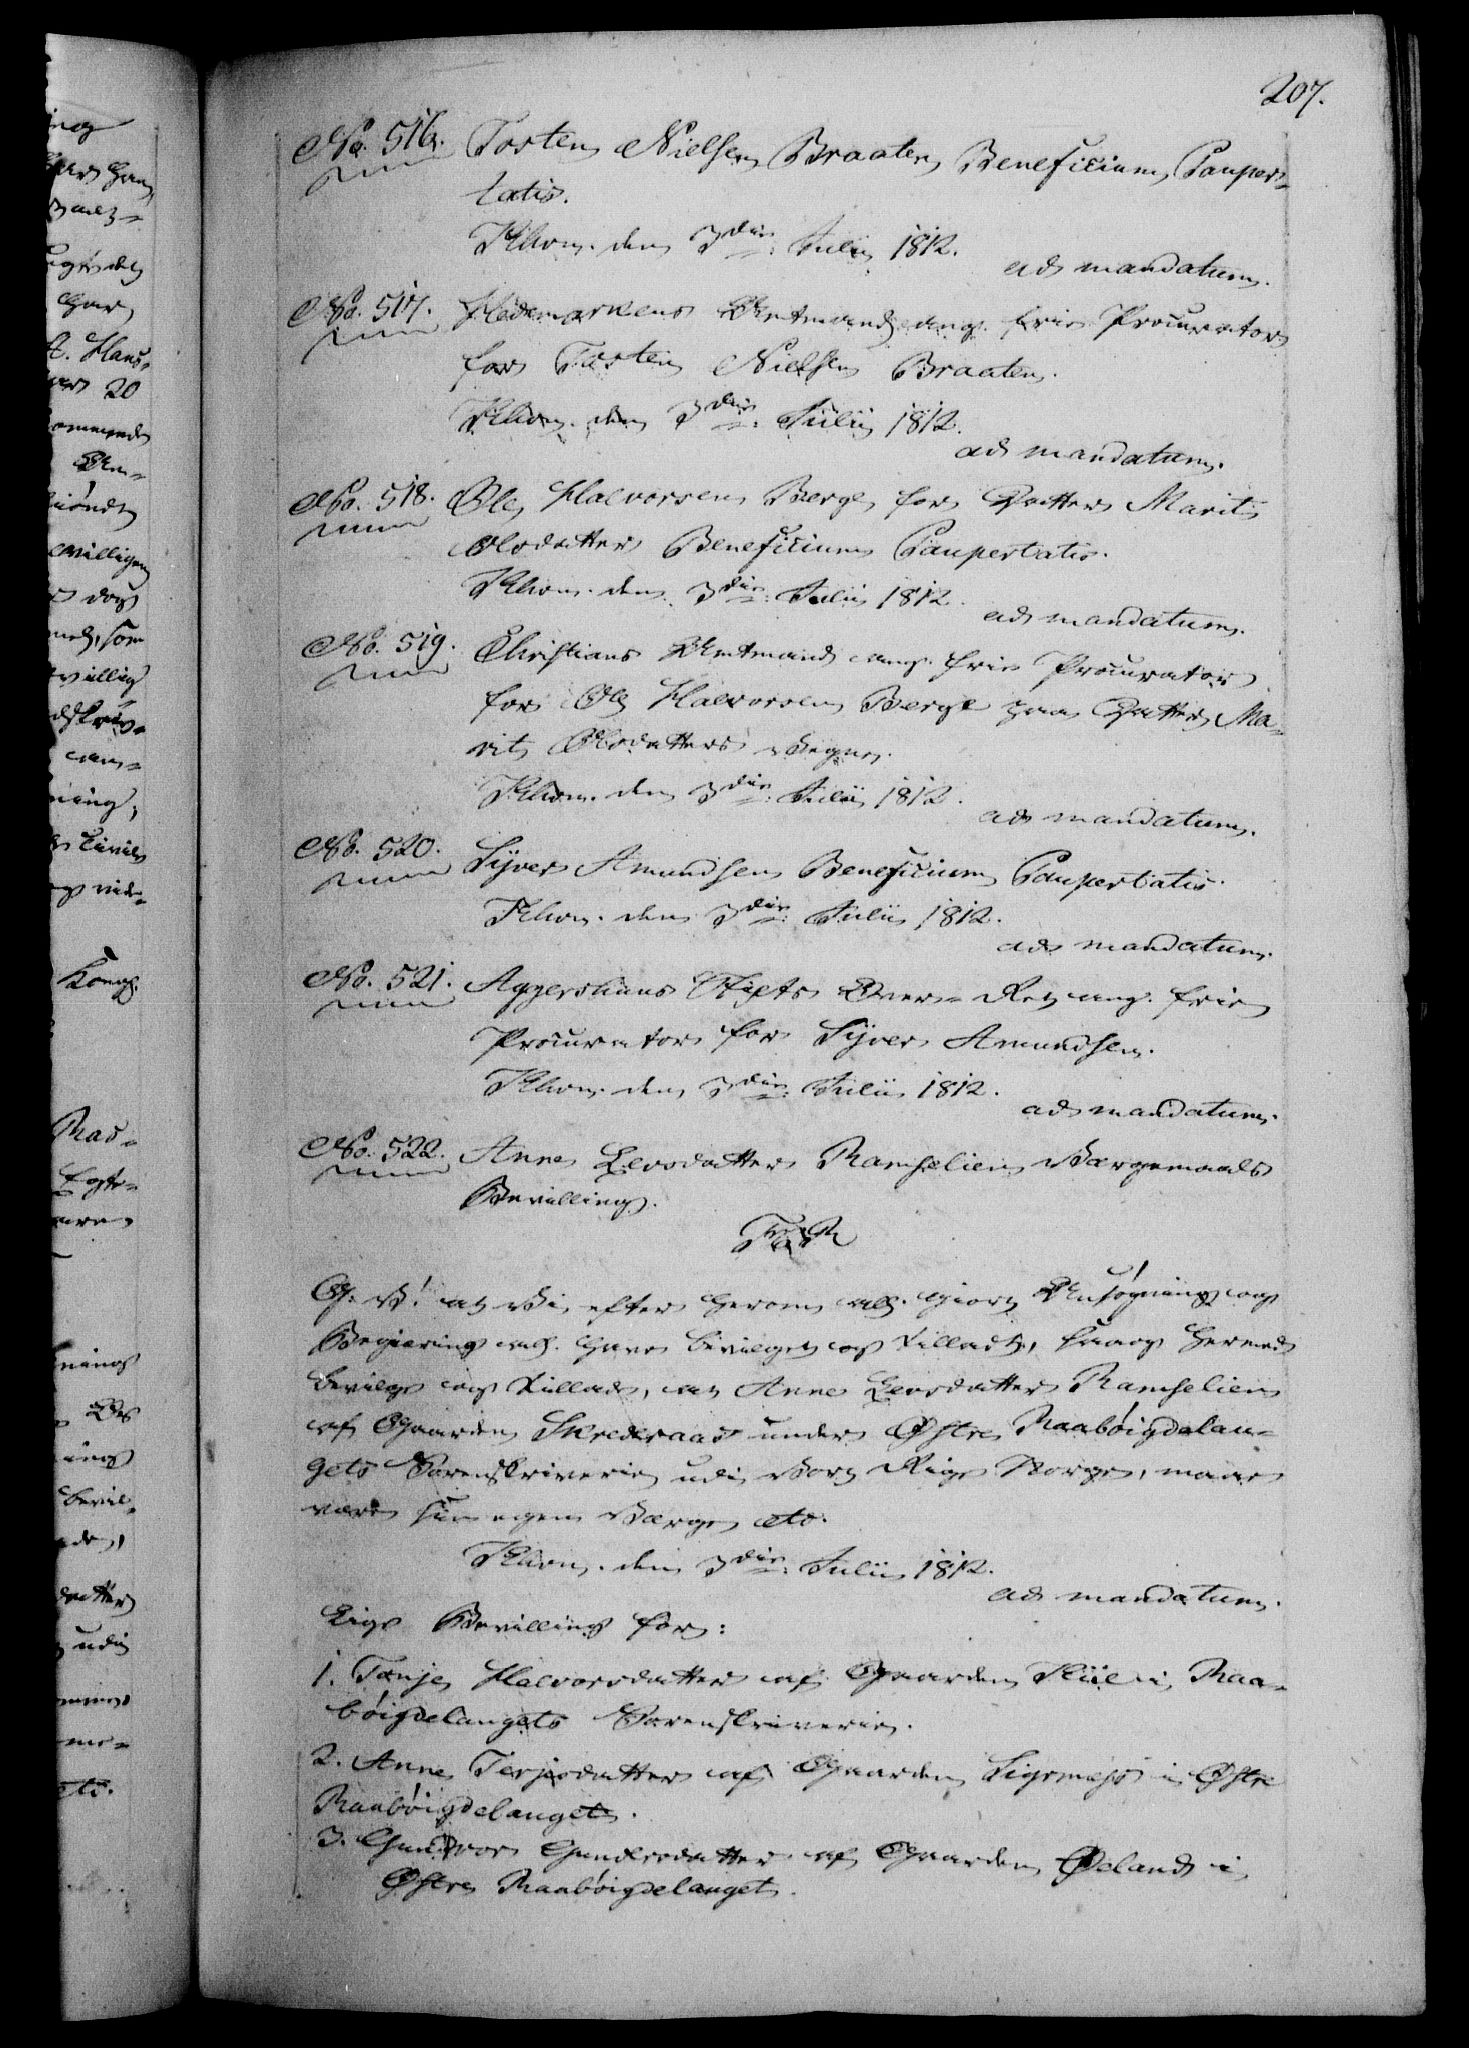 207.
No. 516. Tosten Nielsen Braaten Beneficium Pauper-
tatis.
Khvn. den 3die Julii 1812.
ad mandatum.
No. 517. Hedemarkens Amtmand ang. frie Procurator
for Tosten Nielsen Braaten.
Khvn. den 3die Julii 1812.
ad mandatum.
No. 518. Ole Halvorsen Berge for Datter Marit
Olsdatter Beneficium Paupertatis.
Khvn. den 3die Julii 1812.
ad mandatum.
No. 519. Christians Amtmand ang. frie Procurator
for Ole Halvorsen Berge paa Datter Ma-
rit Olsdatters Vegne.
Khvn. den 3die Julii 1812.
ad mandatum.
No. 520. Syver Amundsen Beneficium Paupertatis.
Khvn. den 3die Julii 1812.
ad mandatum.
No. 521. Aggershuus Stifts Over-Ret ang. frie
Procurator for Syver Amundsen.
Khvn. den 3die Julii 1812.
ad mandatum.
No. 522. Anne Leosdatter Ramselien Værgemaals
Bevilling.
G. V. at Vi efter herom all. giort Ansøgning og
Begiering all. have bevilget og tilladt, saa og hermed
bevilge og tillade, at Anne Leosdatter Ramselien
af Gaarden Skrederaas under Østre Raabøigdelau-
gets Sorenskriverie udi Vort Rige Norge, maae
være sin egen Værge etc.
Khvn. den 3die Julii 1812.
ad mandatum.
Lige Bevilling for:
1. Tonje Halvorsdatter af Gaarden Kiile i Raa-
bøigdelaugets Sorenskriverie.
2. Anne Terjesdatter af Gaarden i Østre
Raabøigdelauget.
3. Gundvor Gundersdatter af Gaarden Øeland i
Østre Raabøigdelauget.